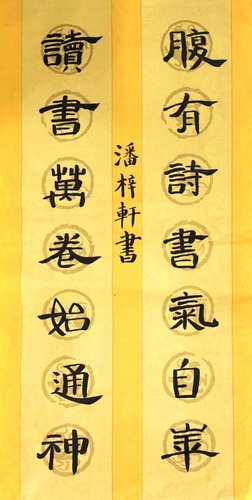 腹有詩書氣自華
讀書萬卷始通神
潘梓軒書